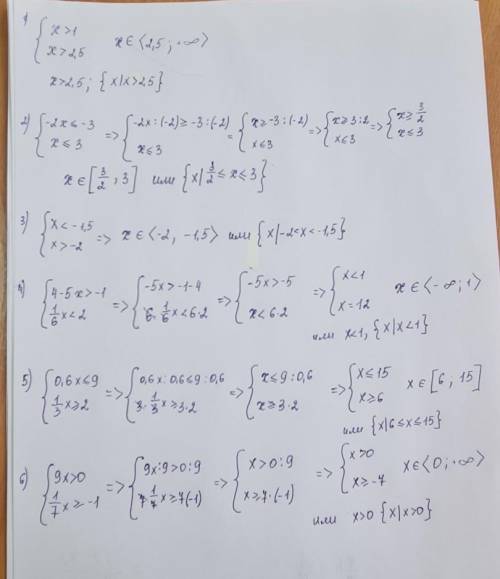 1) { x>1
x>2,5 x∈⟨2,5; ∞⟩
x>2,5; {x|x>2,5}
2) { -2x≤-3
x≤3 => { -2x:(-2)≥-3:(-2)
x≤3 = { x≥-3:(-2)
x≤3 => { x≥3:2
x≤3 => { x≥3/2
x≤3
x∈[3/2, 3] или {x|3/2≤x≤3}
3) { x<-1,5
x>-2 => x∈⟨-2, -1,5⟩ или {x|-2<x<-1,5}
4) { 4-5x>-1
1/6x<2 => { -5x>-1-4
6·1/6x<6·2 => { -5x>-5
x<6·2 => { x<1
x=12 x∈⟨-∞; 1⟩
или x<1, {x|x<1}
5) { 0,6x≤9
1/3x≥2 => { 0,6x:0,6≤9:0,6
3·1/3x≥3·2 => { x≤9:0,6
x≥3·2 => { x≤15
x≥6 x∈[6; 15]
или {x|6≤x≤15}
6) { 9x>0
1/7x≥-1 => { 9x:9>0:9
7·1/7x≥7(-1) => { x>0:9
x≥7·(-1) => { x>0
x≥-7 x∈⟨0; ∞⟩
или x>0 {x|x>0}